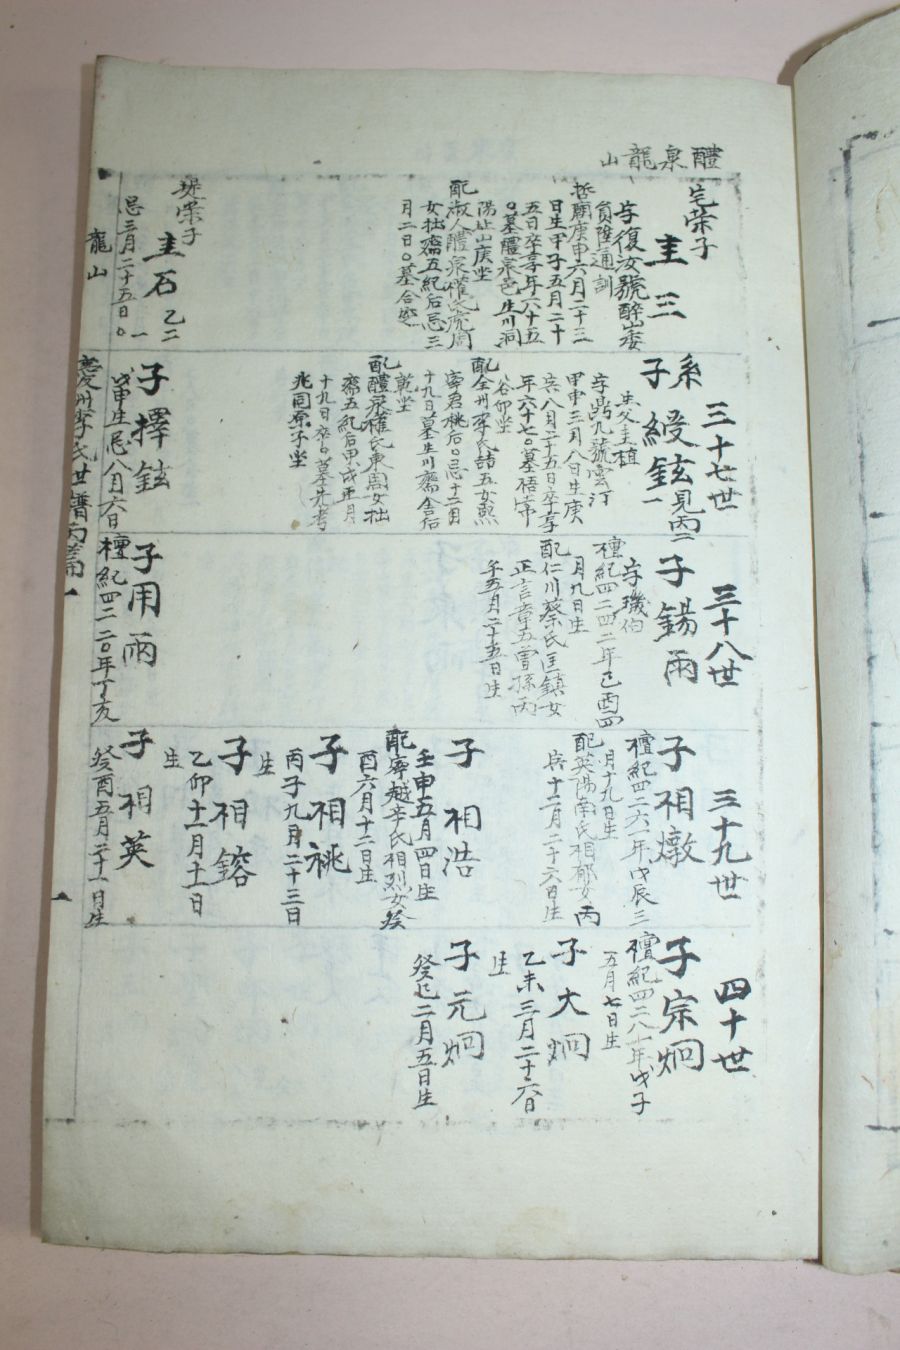 醴泉龍山
宅榮子
圭三
字復汝號醉山委
貟階通訓
哲廟庚申六月二十三
日生甲子五月二十
五日卒享年六十五
○墓醴泉邑生川洞
陽止山庚坐
配淑人醴泉權氏虎周
女拙齋五紀后忌三
月二日○墓合窆
珽榮子
圭石 乙二
忌三月二十五日○一
龍山
三十七世
系子 綬鉉 見丙二
生父圭植
字鼎九號雲汀
甲申三月八日生庚
寅八月二十五日卒享
年六十七○墓
谷卯坐
配全州李氏
寧君 后○忌十二月
十九日墓生川齋舍后
乾坐
配醴泉權氏東周女拙
齋五紀后甲戌正月
十九日卒○墓先考
兆同原子坐
子擇鉉
生忌八月六日
慶州李氏世譜丙篇一
三十八世
子錫雨
字璣伯
檀紀四二四二年己酉四
月九日生
配仁川蔡氏匡鎮女
正言章五曾孫丙
午五月二十五日生
子用雨
檀紀四二二〇年丁亥
三十九世
子相燉
檀紀四二六一年戊辰三
月十九日生
配英陽南氏相郁女丙
寅十二月二十六日生
子相浩
壬申五月四日生
配寧越辛氏相烈女癸
酉六月十二日生
子相祧
丙子九月二十三日
生
子相鎔
乙卯十一月十一日
生
子相英
癸酉五月二十一日生
四十世
子宗炯
檀紀四二八一年戊子
五月七日生
子大炯
乙未三月二十六日
生
子元炯
癸巳二月五日生